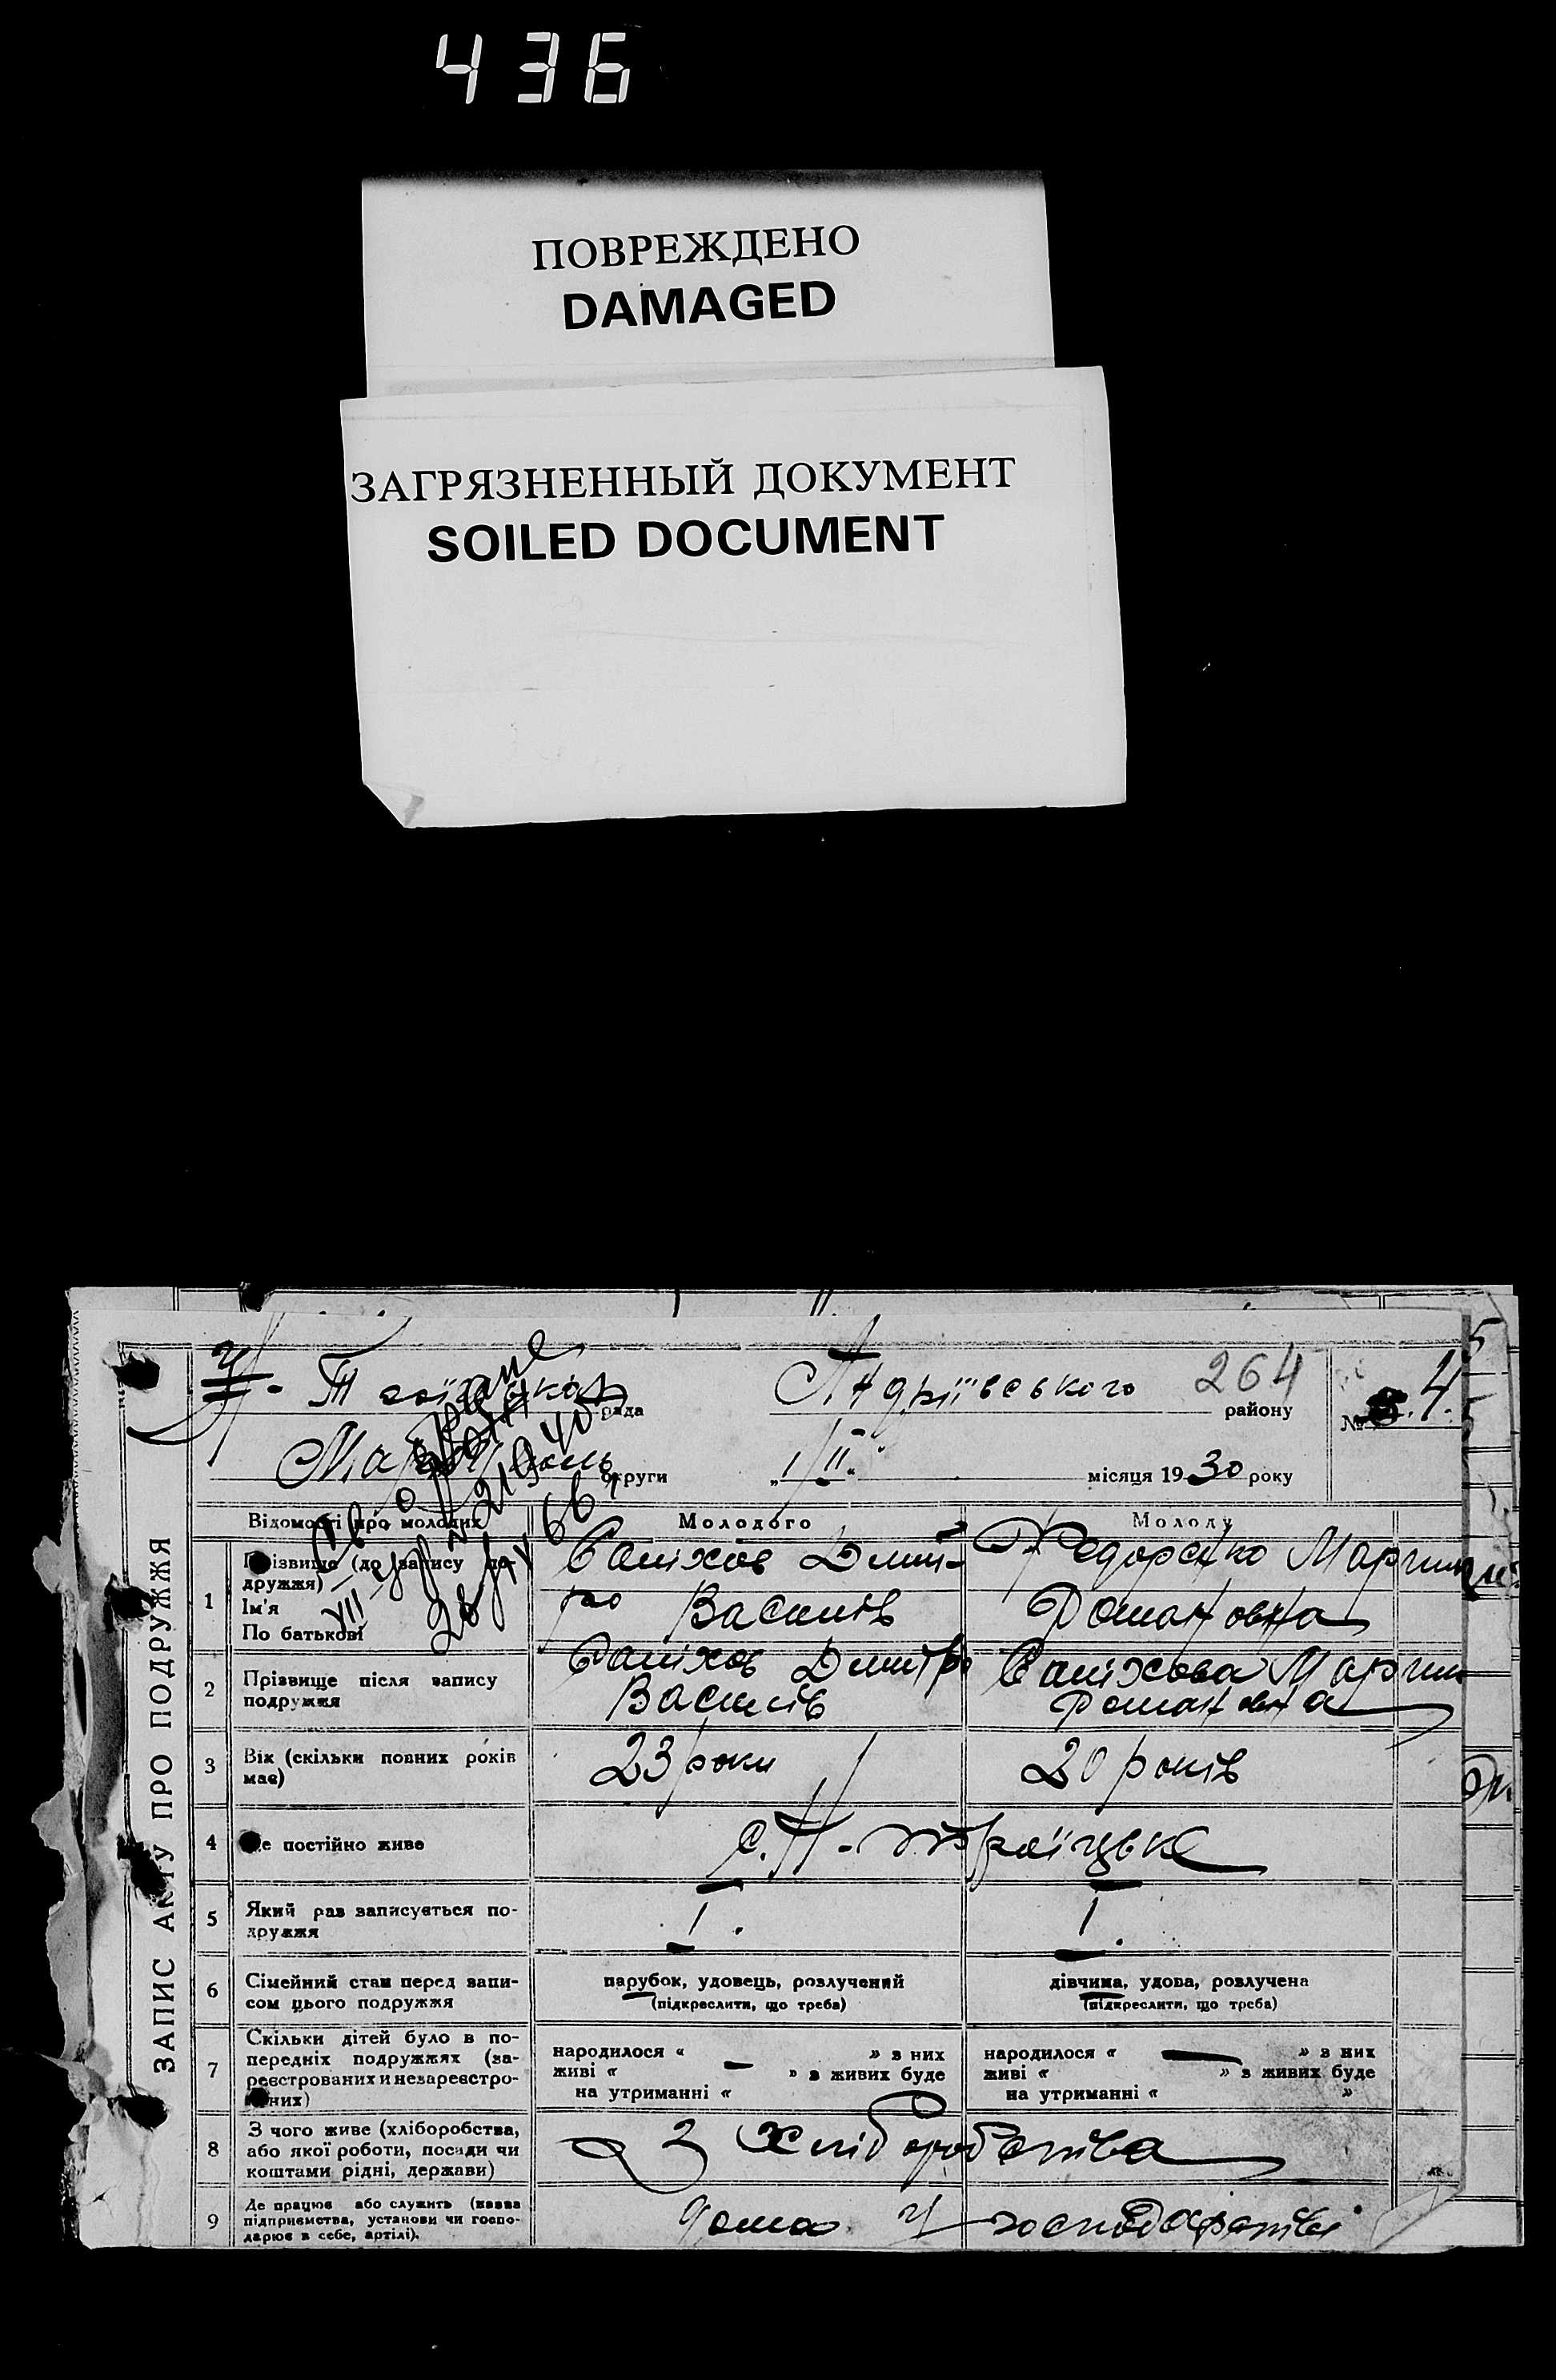 436
ПОВРЕЖДЕНО
DAMAGED
ЗАГРЯЗНЕННЫЙ ДОКУМЕНТ
SOILED DOCUMENT
ЗАПИС АКТУ ПРО ПОДРУЖЖЯ
рада Андріївського району 264 № 4.
округи „1/II“ місяця 1930 року
Відомості про молодих Молодого Молоду
1 Прізвище (до запису подружжя)
Ім'я
По батькові
Саліхов Дмитро Василів
Федоренко Марти Романовна
2 Прізвище після запису
подружжя
Саліхов Дмитро Василів
Саліхова Марти Романовна
3 Вік (скільки повних років
має)
23 роки 20 років
4 Де постійно живе
с. Н-Троїцьке
5 Який раз записується по-
дружжя
I. I.
6 Сімейний стан перед запи-
сом цього подружжя
парубок, удовець, розлучений
(підкреслити, що треба)
дівчина, удова, розлучена
(підкреслити, що треба)
7 Скільки дітей було в по-
передніх подружжях (за-
реєстрованих и незареєстро-
ваних)
народилося « — » з них
живі « » з живих буде
на утриманні «
народилося « — » з них
живі « » з живих буде
на утриманні « »
8 З чого живе (хліборобства,
або якої роботи, посади чи
коштами рідні, держави)
З Хліборобства
9 Де працює або служить (назва
підприємства, установи чи госпо-
дарює в себе, артілі).
дома у господарстві